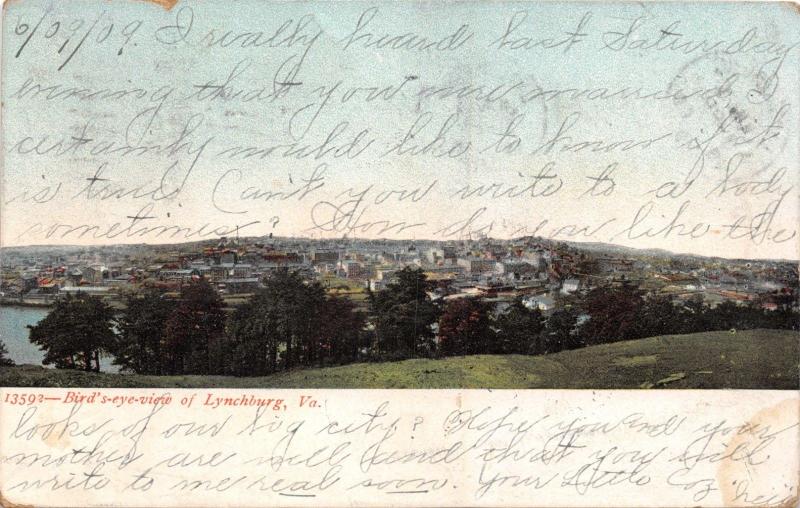 6/09/09. I really heard last Saturday
evening that you were married I
certainly would like to know if it
is true Can't you write to a body
sometimes? How do you like the
13592—Bird's-eye-view of Lynchburg, Va.
looks of our big city? Hope you and your
mother are well and that you will
write to me real soon. Your Little Coz